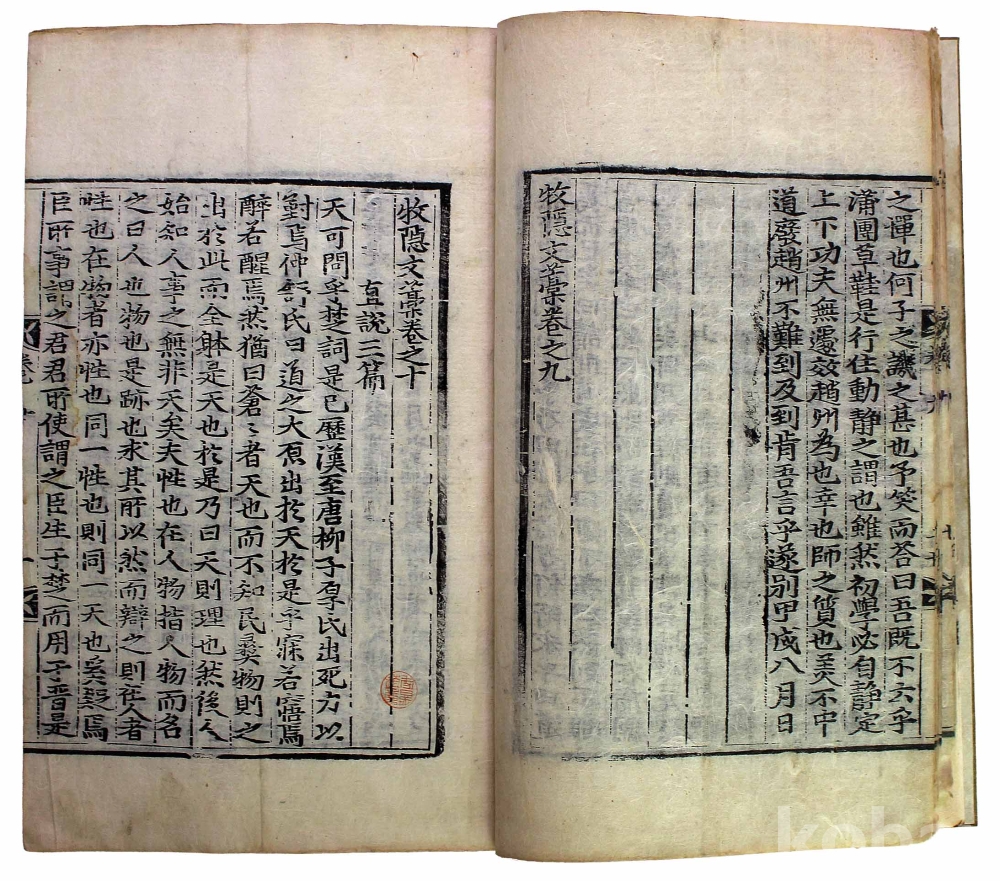 之憚也何子之譏之甚也予笑而荅曰吾既不云乎
蒲團草鞋是行住動静之謂也雖然初學必自静定
上下功夫無遽效趙州為也幸也師之質也美不中
道廢趙州不難到及到肯吾言乎遂别甲戌八月日
牧隱文藁卷之九
牧隱文藁卷之十
直說三篇
天可問乎楚詞是已歷漢至唐柳子厚氏出死力以
對焉仲舒氏曰道之大原出於天於是乎寐若寤焉
醉若醒焉然猶曰蒼〻者天也而不知民彛物則之
出於此而全躰是天也於是乃曰天則理也然後人
始知人事之無非天矣夫性也在人物指人物而名
之曰人也物也是跡也求其所以然而辯之則在人者
性也在物者亦性也同一性也則同一天也奚疑焉
臣所事謂之君君所使謂之臣生于楚而用于晋是